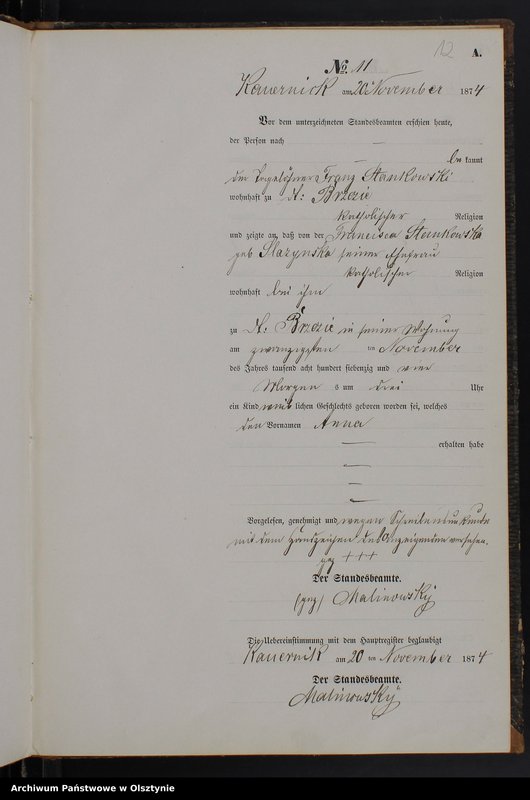 12 A.
No. 11
Kauernick am 20 November 1874
Vor dem unterzeichneten Standesbeamten erschien heute,
der Person nach —
— bekannt
der Tagelöhner Franz Stankowski
wohnhaft zu N: Brzezie
katholischer Religion
und zeigte an, daß von der Francisca Stankowska
geb Slazynska seiner Ehefrau
katholischer Religion
wohnhaft bei ihm
zu N: Brzezie in seiner Wohnung
am zwanzigsten ten November
des Jahres tausend acht hundert siebenzig und vier
Morgens um drei Uhr
ein Kind weiblichen Geschlechts geboren worden sei, welches
den Vornamen Anna
— erhalten habe
—
—
—
Vorgelesen, genehmigt und wegen Schreibensunkunde
mit dem Handzeichen des Anzeigenden versehen.
gez +++
Der Standesbeamte.
(gez) Malinowsky
Die Uebereinstimmung mit dem Hauptregister beglaubigt
Kauernik am 20 ten November 1874
Der Standesbeamte.
Malinowsky
Archiwum Państwowe w Olsztynie